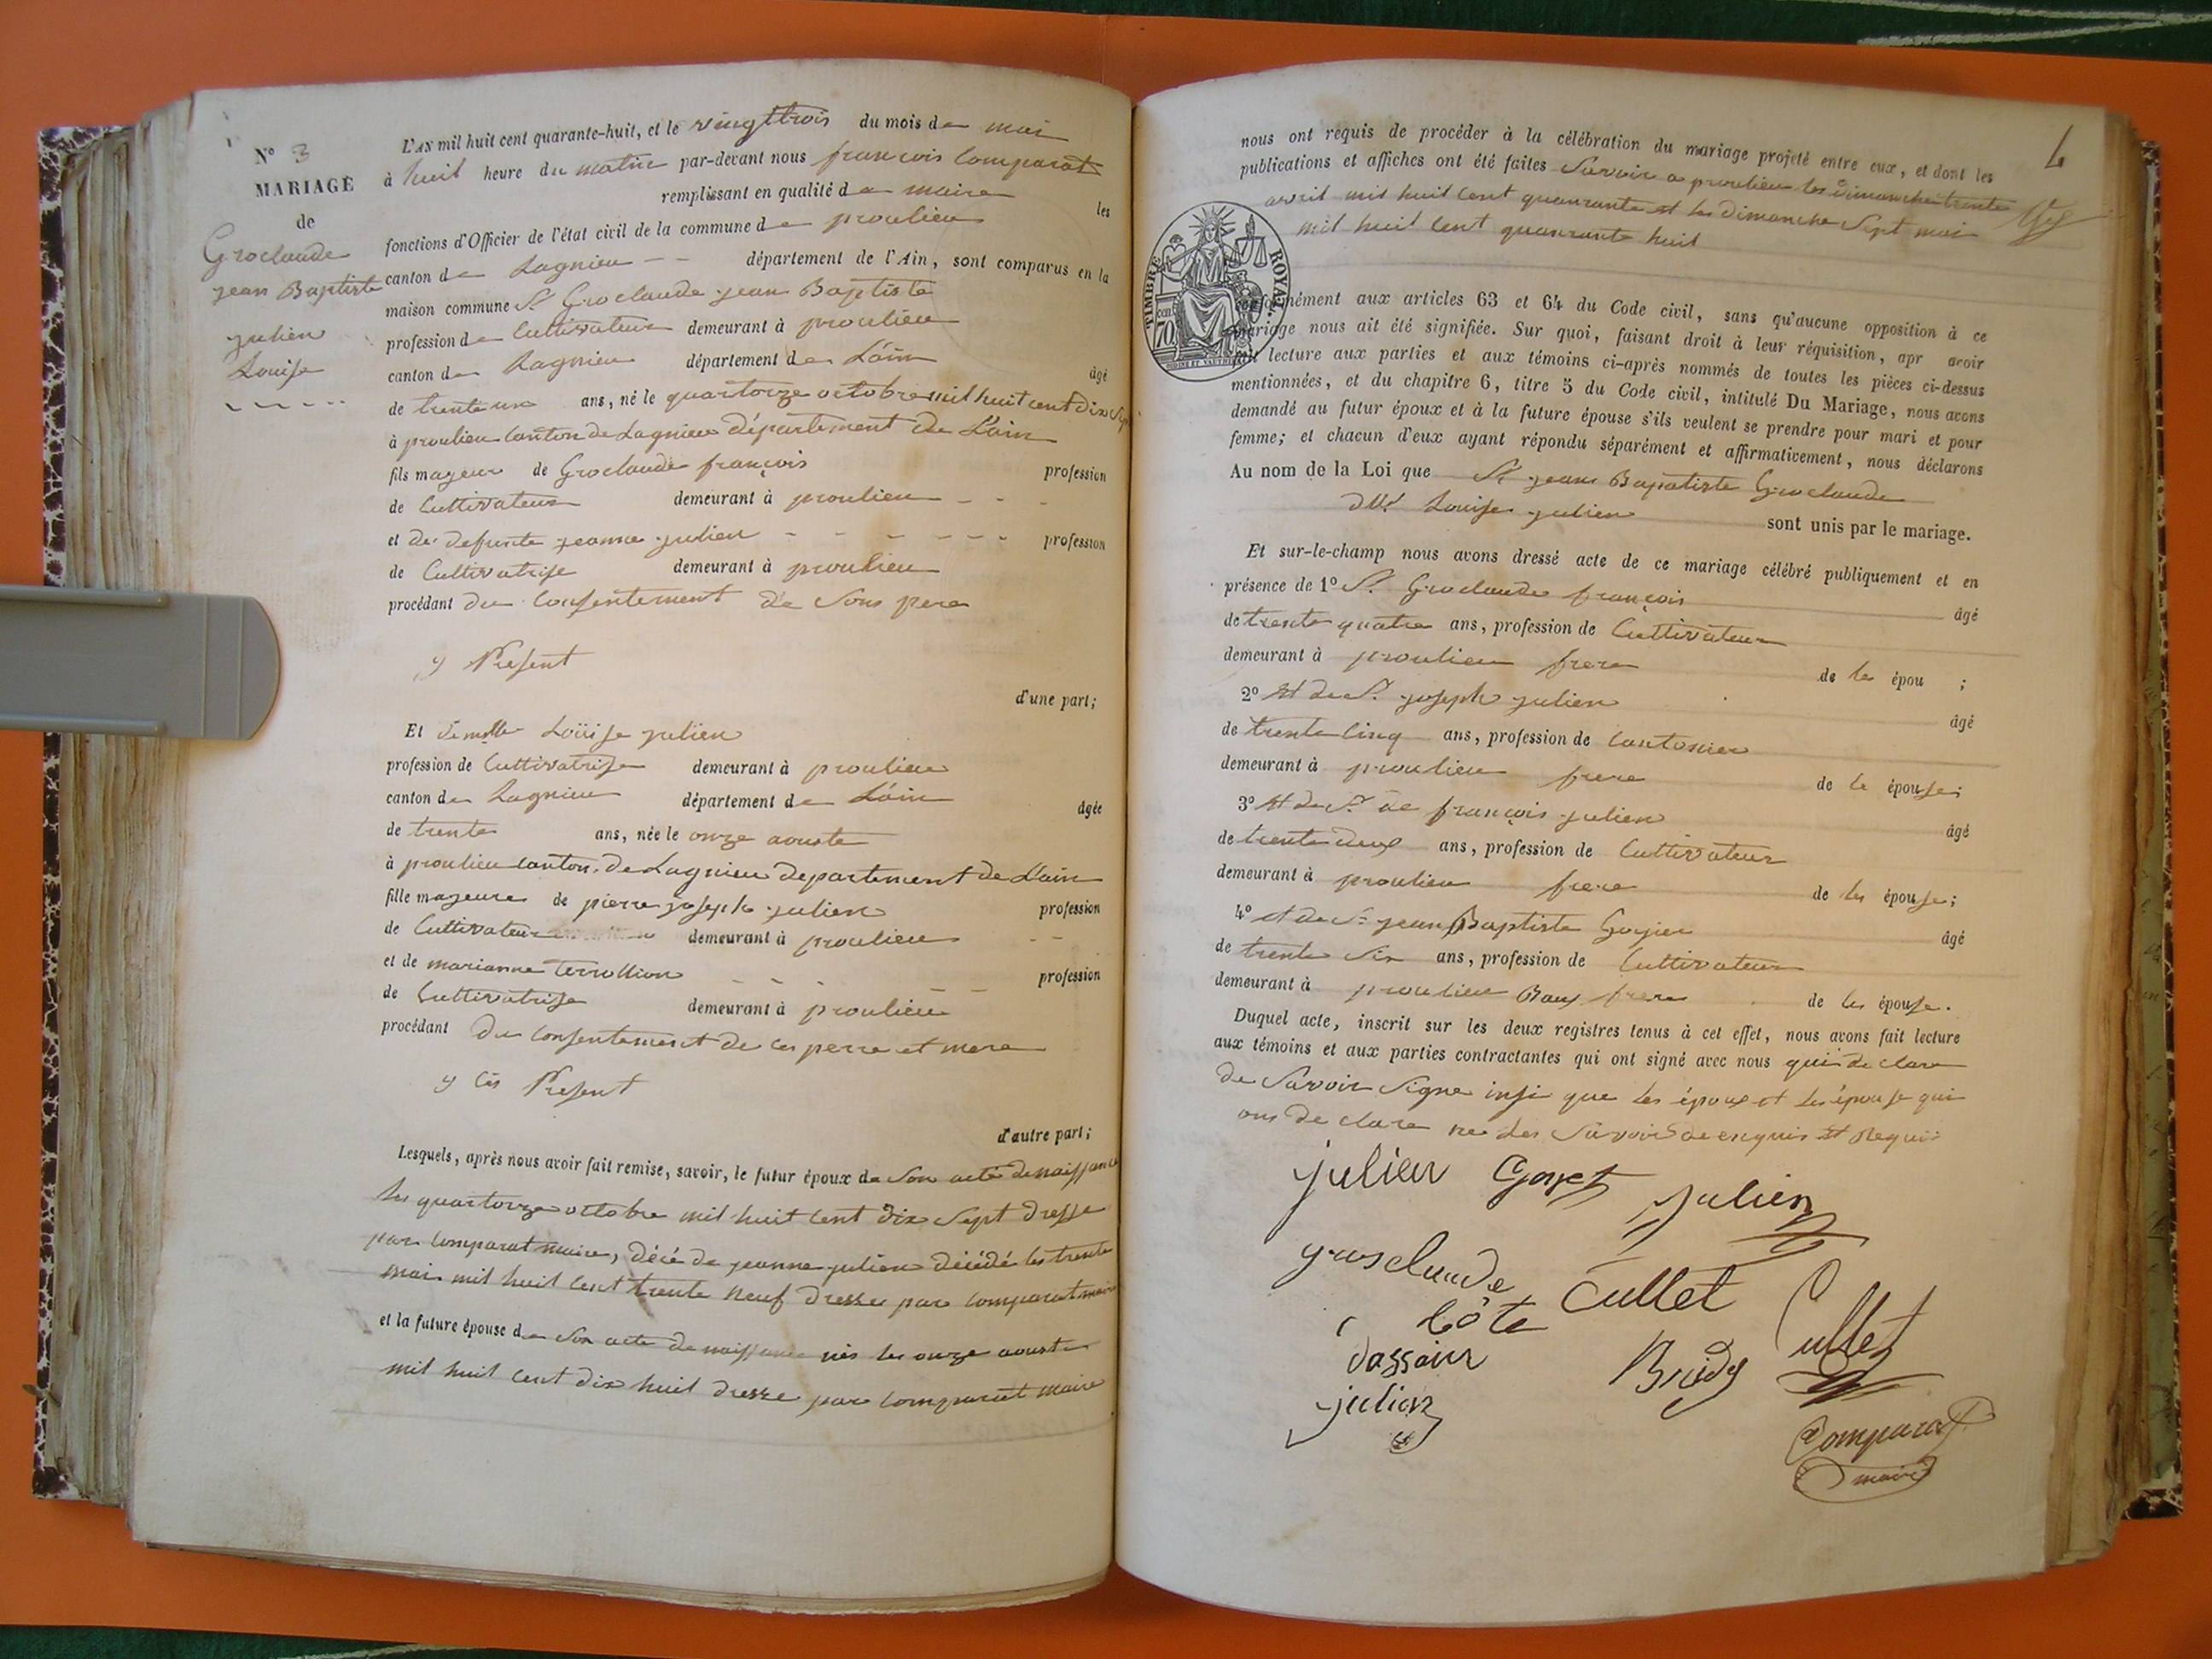 N° 3
MARIAGE
de
Groclaude
jean Baptiste
julien
Louise
L'AN mil huit cent quarante-huit, et le vingt trois du mois de mai
à huit heure du matin par-devant nous françois Comparat
remplissant en qualité de maire les
fonctions d'Officier de l'état civil de la commune de proulieu
canton de Lagnieu -- département de l'Ain, sont comparus en la
maison commune Sr Groclaude jean Baptiste
profession de Cultivateur demeurant à proulieu
canton de Lagnieu département de L'ain âgé
de trente un ans, né le quartorze octobre mil huit cent dix Sept
à proulieu canton de Lagnieu département de L'ain
fils mageur de Groclaude françois profession
de Cultivateur demeurant à proulieu - - -
et de defunte jeanne julien - - - - - - profession
de Cultivatrise demeurant à proulieu
procédant du consentement de Sons pere
y Present
d'une part;
Et demlle Loüise julien
profession de Cultivatrise demeurant à proulieu
canton de Lagnieu département de L'ain âgée
de trente ans, née le onze aouste
à proulieu canton de Lagnieu departement de L'ain
fille mageure de pierre joseph julien profession
de Cultivateur demeurant à proulieu - -
et de marianne Terrollion - - - - profession
de Cultivatrise demeurant à proulieu
procédant du consentement de ces perre et mere
y cis Present
d'autre part;
Lesquels, après nous avoir fait remise, savoir, le futur époux de Son acte de naissance
les quartorze octobre mil huit cent dix Sept dresse
par comparat maire, décé de jeanne julien décédé les trente
mai mil huit cent trente neuf dresse par comparat maire
et la future épouse de Son acte de naissance nés les onze aouste
mil huit cent dix huit dresse par comparat maire
4
nous ont requis de procéder à la célébration du mariage projeté entre eux, et dont les
publications et affiches ont été faites Savoir a proulieu les dimanche trente
avril mil huit cent quanrante et les dimanche Sept mai
mil huit cent quanrante huit
TIMBRE ROYAL
70 cen.
conformément aux articles 63 et 64 du Code civil, sans qu'aucune opposition à ce
mariage nous ait été signifiée. Sur quoi, faisant droit à leur réquisition, apr avoir
fait lecture aux parties et aux témoins ci-après nommés de toutes les pièces ci-dessus
mentionnées, et du chapitre 6, titre 5 du Code civil, intitulé Du Mariage, nous avons
demandé au futur époux et à la future épouse s'ils veulent se prendre pour mari et pour
femme; et chacun d'eux ayant répondu séparément et affirmativement, nous déclarons
Au nom de la Loi que Sr jean Bapatiste Groclaude
dlle Louise julien sont unis par le mariage.
Et sur-le-champ nous avons dressé acte de ce mariage célébré publiquement et en
présence de 1° Sr Groclaude françois âgé
de trente quatre ans, profession de Cultivateur
demeurant à proulieu frere de les épou ;
2° et de Sr joseph julien âgé
de trente cinq ans, profession de cantonier
demeurant à proulieu frere de le épouse;
3° et de Sr de françois julien âgé
de trente deux ans, profession de Cultivateur
demeurant à proulieu frere de les épouse;
4° et de Sr jean Baptiste Goyier âgé
de trente Six ans, profession de Cultivateur
demeurant à proulieu Baux frere de les épouse.
Duquel acte, inscrit sur les deux registres tenus à cet effet, nous avons fait lecture
aux témoins et aux parties contractantes qui ont signé avec nous qui de clare
de Savoir Signe insi que les époux et les épouse qui
ons de clare ne les Savoir de enquis et Requis
julien Goyet julien
grosclaude Cullet Cullet
Côte
dassain Bridy
julien
Comparat
maire